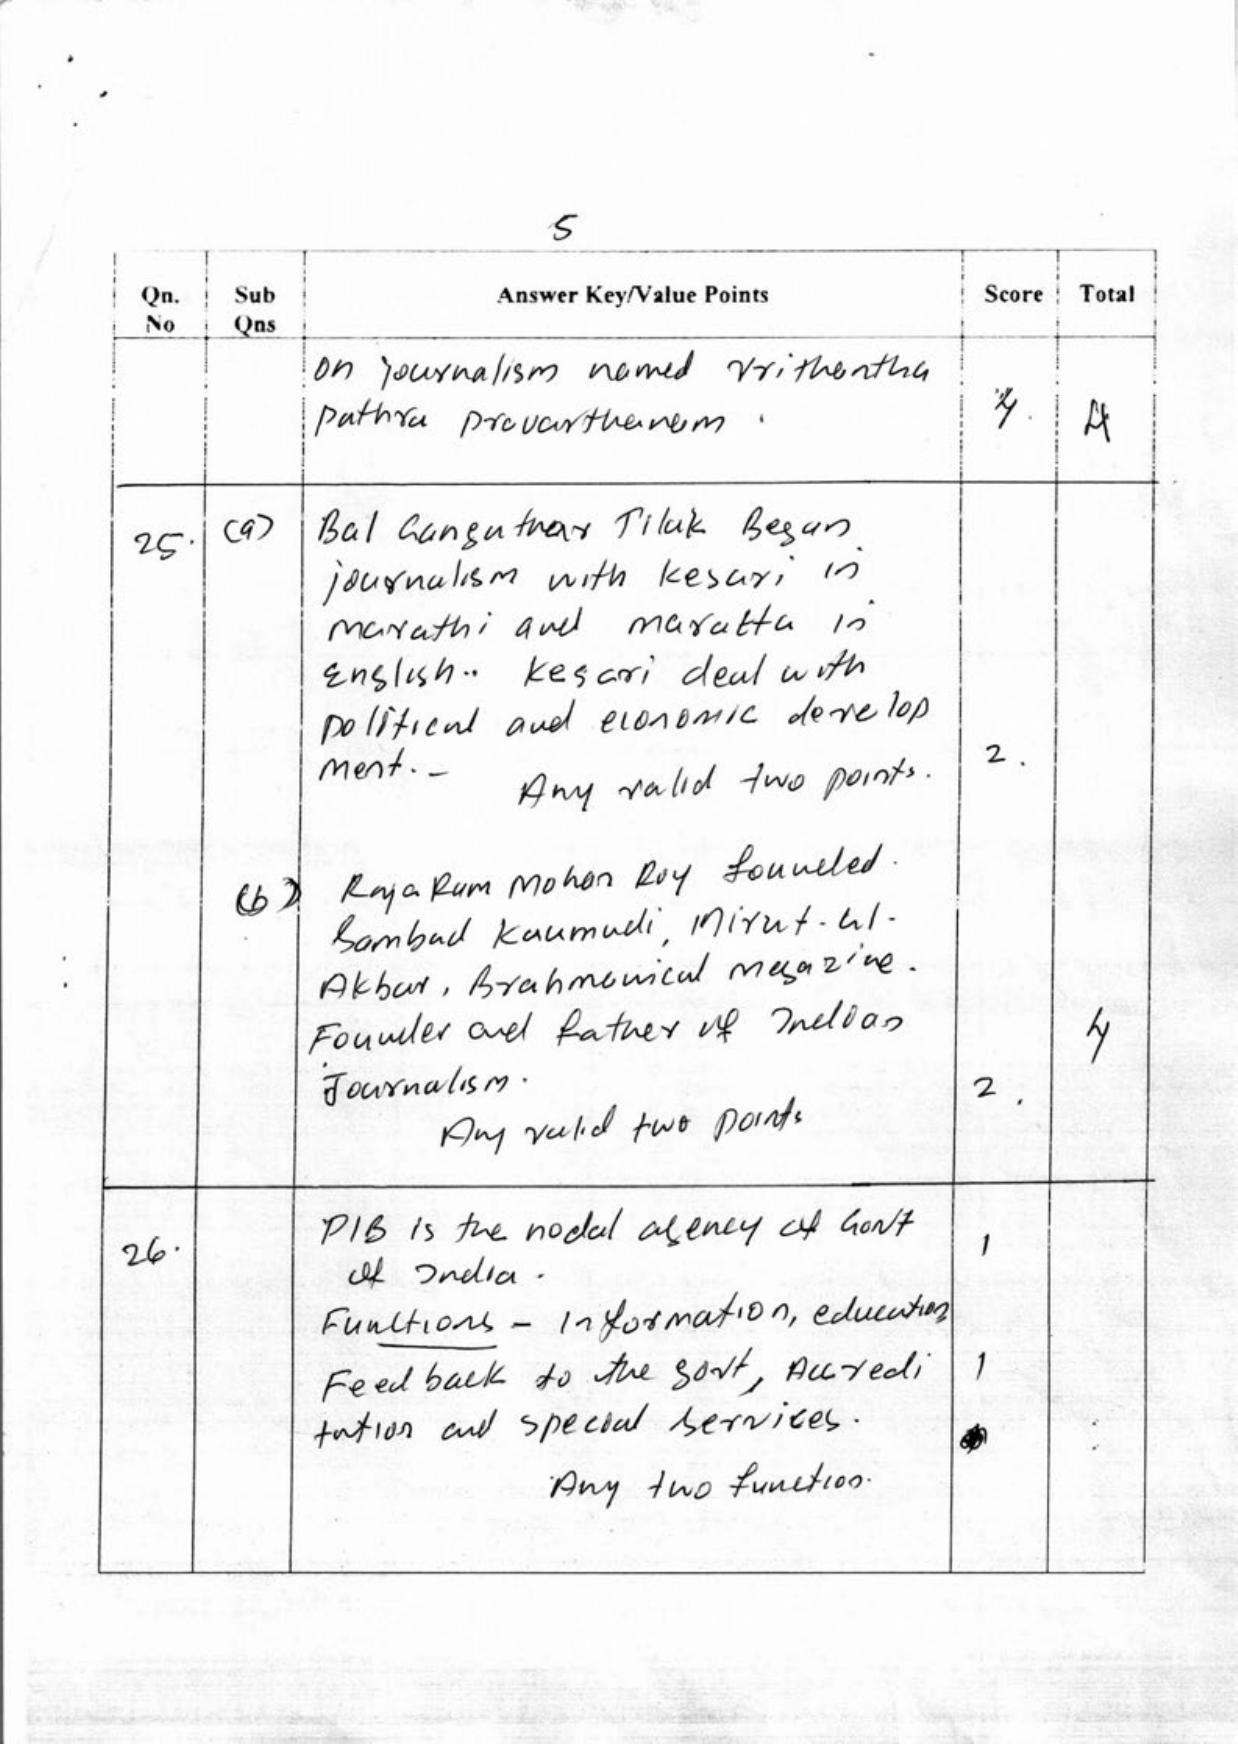 5
Qn. No
Sub Qns
Answer Key/Value Points
Score
Total
on journalism named vrithantha
pathra pravarthanam .
4.
4
25. (a) Bal Gangathar Tilak Began
journalism with kesari in
marathi and maratta in
English.. kesari deal with
political and economic develop
ment. -
Any valid two points.
2.
(b) Raja Ram Mohan Roy founded.
Sambad Kaumudi, Mirut-ul-
Akbar, Brahmanical magazine.
Founder and father of Indian
Journalism.
2.
4
Any valid two points
26. PIB is the nodal agency of Govt
of India.
1
Functions - Information, education
Feedback to the govt, Accredi
1
tation and special services.
Any two function.